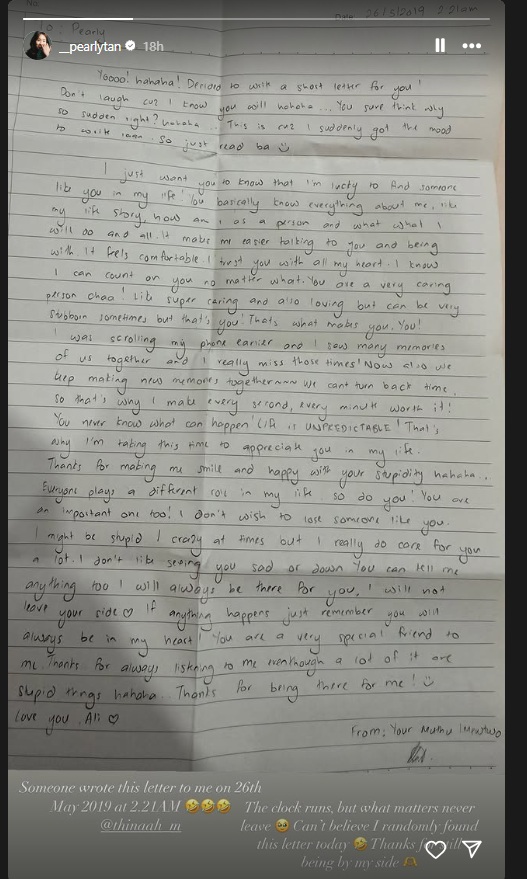 No
Date 26/5/2019 2.21am
To: Pearly
__pearlytan 18h
Yoooo! hahaha! Decided to write a short letter for you!
Don't laugh cuz I know you will hahaha ... You sure think why
so sudden right? hahaha ... This is cuz I suddenly got the mood
to write. So just read ba
I just want you to know that I'm lucky to find someone
like you in my life! You basically know everything about me, like
my life story, how am I as a person and what what I
will do and all. It makes me easier talking to you and being
with. It feels comfortable. I trust you with all my heart. I know
I can count on you no matter what. You are a very caring
person ohao! Like super caring and also loving but can be very
stubborn sometimes but that's you! That's what makes you, You!
I was scrolling my phone earlier and I saw many memories
of us together and I really miss those times! Now also we
keep making new memories together~~~ We cant turn back time,
so that's why I make every second, every minute worth it!
You never know what can happen! Life is UNPREDICTABLE! That's
why I'm taking this time to appreciate you in my life.
Thanks for making me smile and happy with your stupidity hahaha...
Everyone plays a different role in my life, so do you! You are
an important one too! I don't wish to lose someone like you.
I might be stupid / crazy at times but I really do care for you
a lot. I don't like seeing you sad or down. You can tell me
anything too! I will always be there for you. I will not
leave your side ♡ If anything happens just remember you will
always be in my heart! You are a very special friend to
me. Thanks for always listening to me eventhough a lot of it are
stupid things hahaha.. Thanks for being there for me!
Love you, Ali ♡
From; Your Muthu
Someone wrote this letter to me on 26th
May 2019 at 2.21AM 🤣🤣🤣
@thinaah_m
The clock runs, but what matters never
leave 🥹 Can't believe I randomly found
this letter today 🤣 Thanks for still
being by my side 🫶